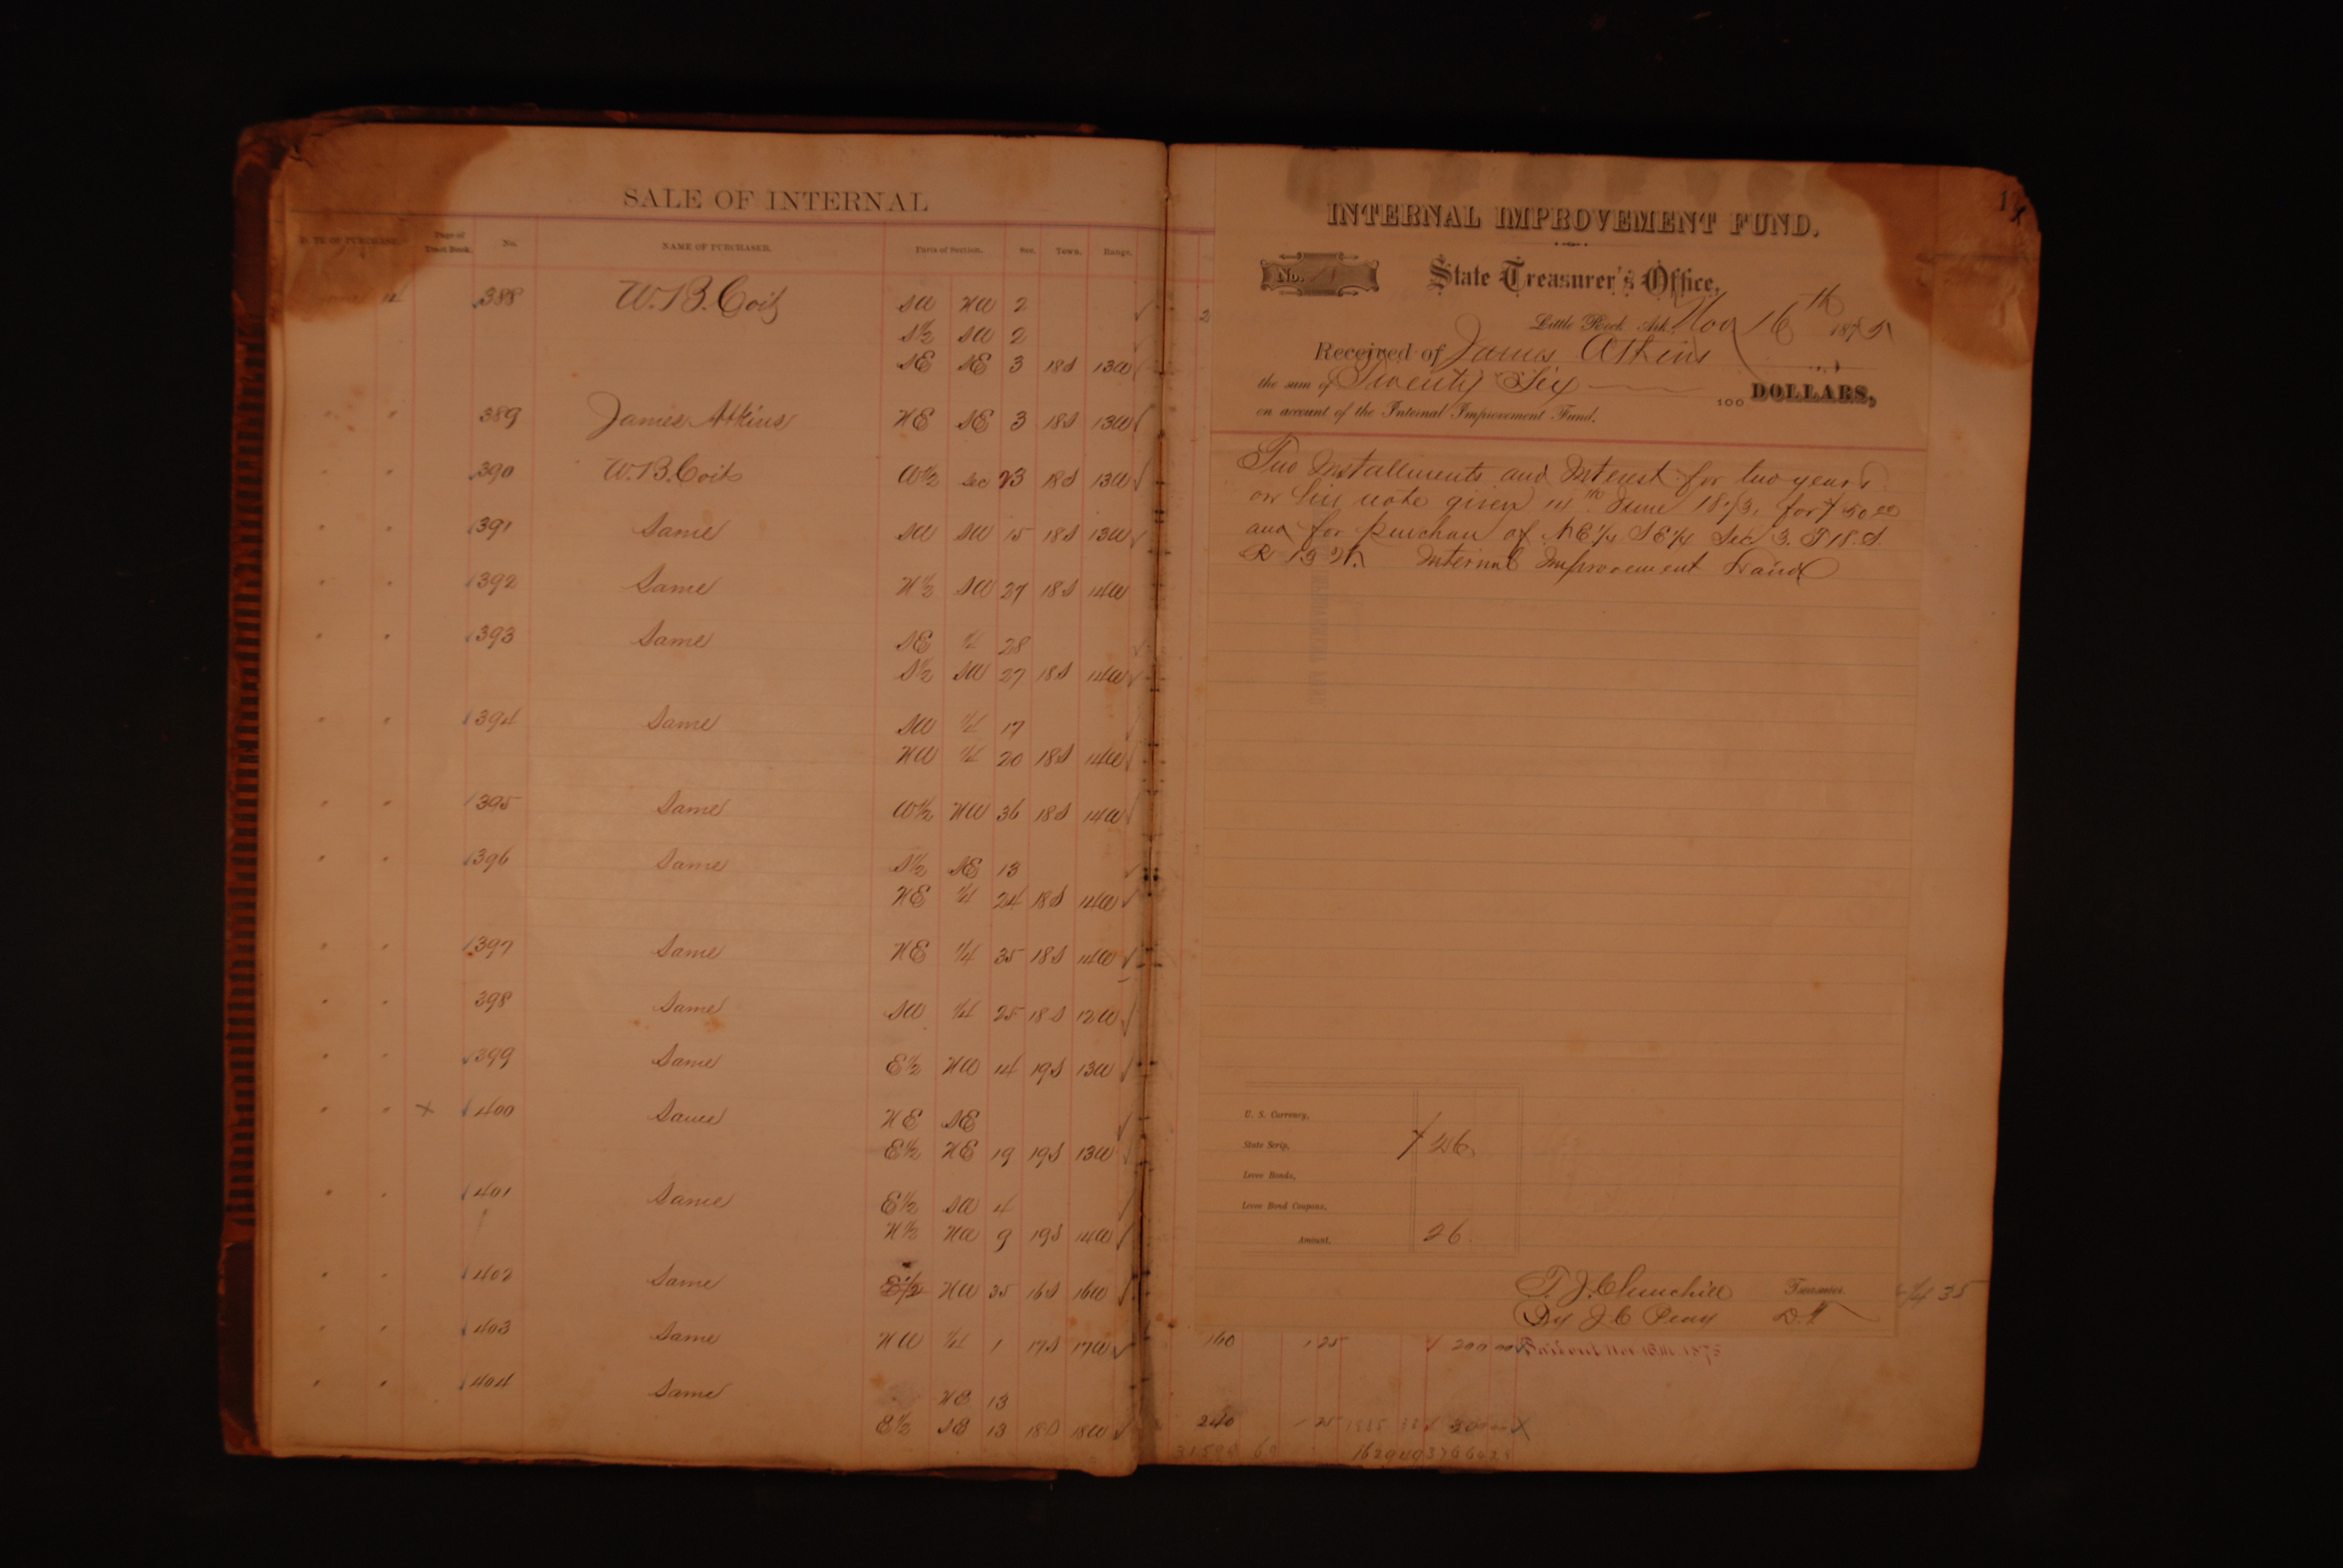 SALE OF INTERNAL
DATE OF PURCHASE. Page of Tract Book. No. NAME OF PURCHASER. Parts of Section. Sec. Town. Range.
June 14 388 W. B. Coit SW NW 2
S½ SW 2
SE SE 3 18S 13W
" " 389 James Atkins NE SE 3 18S 13W
" " 390 W. B. Coit W½ Sec 23 18S 13W
" " 391 Same SW SW 15 18S 13W
" " 392 Same N½ SW 27 18S 14W
" " 393 Same SE ¼ 28
S½ SW 27 18S 14W
" " 394 Same SW ¼ 17
NW ¼ 20 18S 14W
" " 395 Same W½ NW 36 18S 14W
" " 396 Same S½ SE 13
NE ¼ 24 18S 14W
" " 397 Same NE ¼ 35 18S 14W
" " 398 Same SW ¼ 25 18S 12W
" " 399 Same E½ NW 14 19S 13W
" " X 400 Same NE SE
E½ NE 19 19S 13W
" " 401 Same E½ SW 4
N½ NW 9 19S 14W
" " 402 Same E½ NW 35 16S 16W
" " 403 Same NW ¼ 1 17S 17W
" " 404 Same NE 13
E½ SE 13 18S 18W
INTERNAL IMPROVEMENT FUND.
No. State Treasurer's Office,
Little Rock, Ark., Nov 16th 1875
Received of James Atkins
the sum of Twenty Six 100 DOLLARS,
on account of the Internal Improvement Fund.
Two Installments and Interest for two years
on his note given 14th June 1873, for $50.00
and for purchase of NE¼ SE¼ Sec 3. T18.S.
R 13 W. Internal Improvement Land
U. S. Currency,
State Scrip, $26
Levee Bonds,
Levee Bond Coupons,
Amount, 26
T. J. Churchill Treasurer
By J. C. Peay D.T.
160 1 25 200 00 Patent Nov 16th 1875
240 1 25 300 00